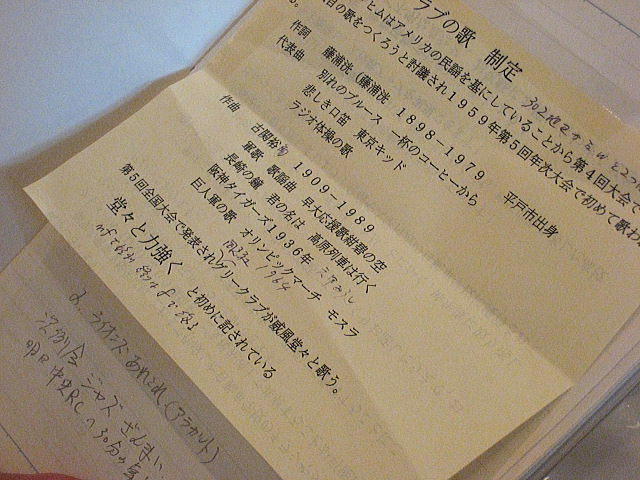 ラブの歌　制定
ヒムはアメリカの民謡を基にしていることから第４回大会で
目の歌をつくろうと討議され１９５９年第５回年次大会で初めて歌わ
る。
作詞　藤浦洸（藤浦洸　１８９８-１９７９　平戸市出身
代表曲　別れのブルース　一杯のコーヒーから
悲しき口笛　東京キッド
ラジオ体操の歌
作曲　古関裕　１９０９-１９８９
軍歌　歌謡曲　早大応援歌紺碧の空
長崎の鐘　君の名は　高原列車は行く
阪神タイガース１９３６年
巨人軍の歌　オリンピックマーチ　モスラ
1964
第５回全国大会で発表されグリークラブが威風堂々と歌う。
堂々と力強く　と初めに記されている
2. ライオンズあれこれ(アラカルト)
ジャズ ざんまい
明日 中央RC へ30分の